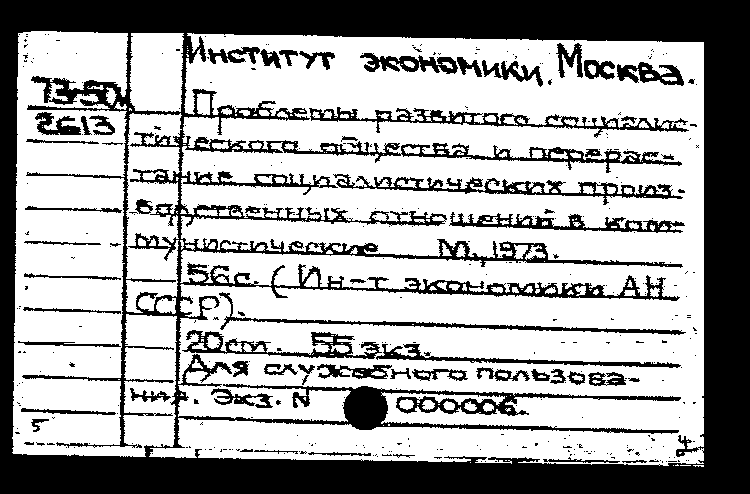 Институт экономики. Москва.
73-50
2613
Проблемы развитого социалис-
тического общества и перерас-
тание социалистических произ-
водственных отношений в ком-
мунистические М., 1973.
56с. (Ин-т экономики АН
СССР).
20см. 55 экз.
Для служебного пользова-
ния. Экз. N 000006.
5